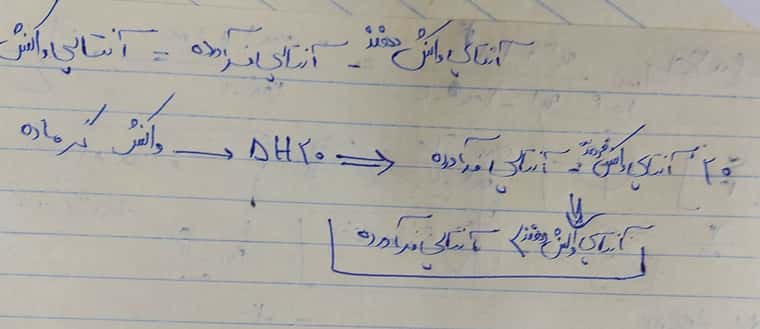 آنتالپی واکنش = آنتالپی فرآورده - آنتالپی واکنش دهنده
واکنش گرماده → ΔH<0 ⇒ آنتالپی فرآورده - آنتالپی واکنش دهنده <0
⇓
آنتالپی واکنش دهنده > آنتالپی فرآورده